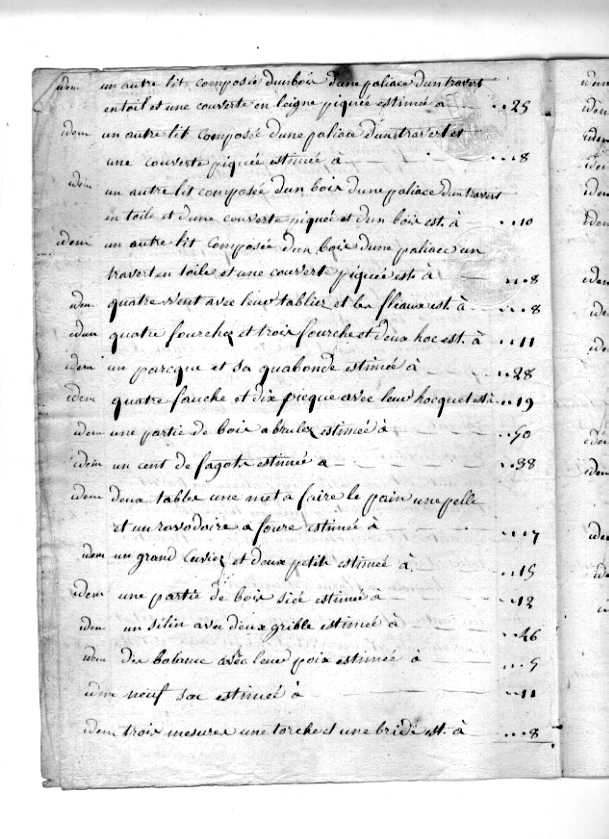 idem un autre lit composée dun bois dune paliace dun travert
en toil et une couverte en leigne piquée estimée à ... 25
idem un autre lit composée dune paliace dun travert et
une couverte piquée estimée à ... 8
idem un autre lit composée dun bois dune paliace dun travert
en toile et dune couverte piquée et dun bois est. à ... 10
idem un autre lit composée dun bois dune paliace un
travert en toile et une couvert piquée est. à ... 8
idem quatre vent avec leur tablier et les fleaux est. à ... 8
idem quatre fourchez et trois fourche et deux hoc est. à ... 11
idem un parcque et sa quabonde estimée à ... 28
idem quatre fauche et dix picque avec leur hocquet est à ... 19
idem une partie de bois a brulez estimée à ... 50
idem un cent de fagots estimée a ... 38
idem deux tables une met a faire le pain une pelle
et un ravodoire a foure estimée à ... 7
idem un grand cuviez et deux petits estimée à ... 15
idem une partie de bois siée estimée à ... 12
idem un silin avec deux grible estimée à ... 46
idem des balance avec leur poix estimée à ... 5
idem neuf sac estimée à ... 11
idem trois mesures une torche et une bride est. à ... 8